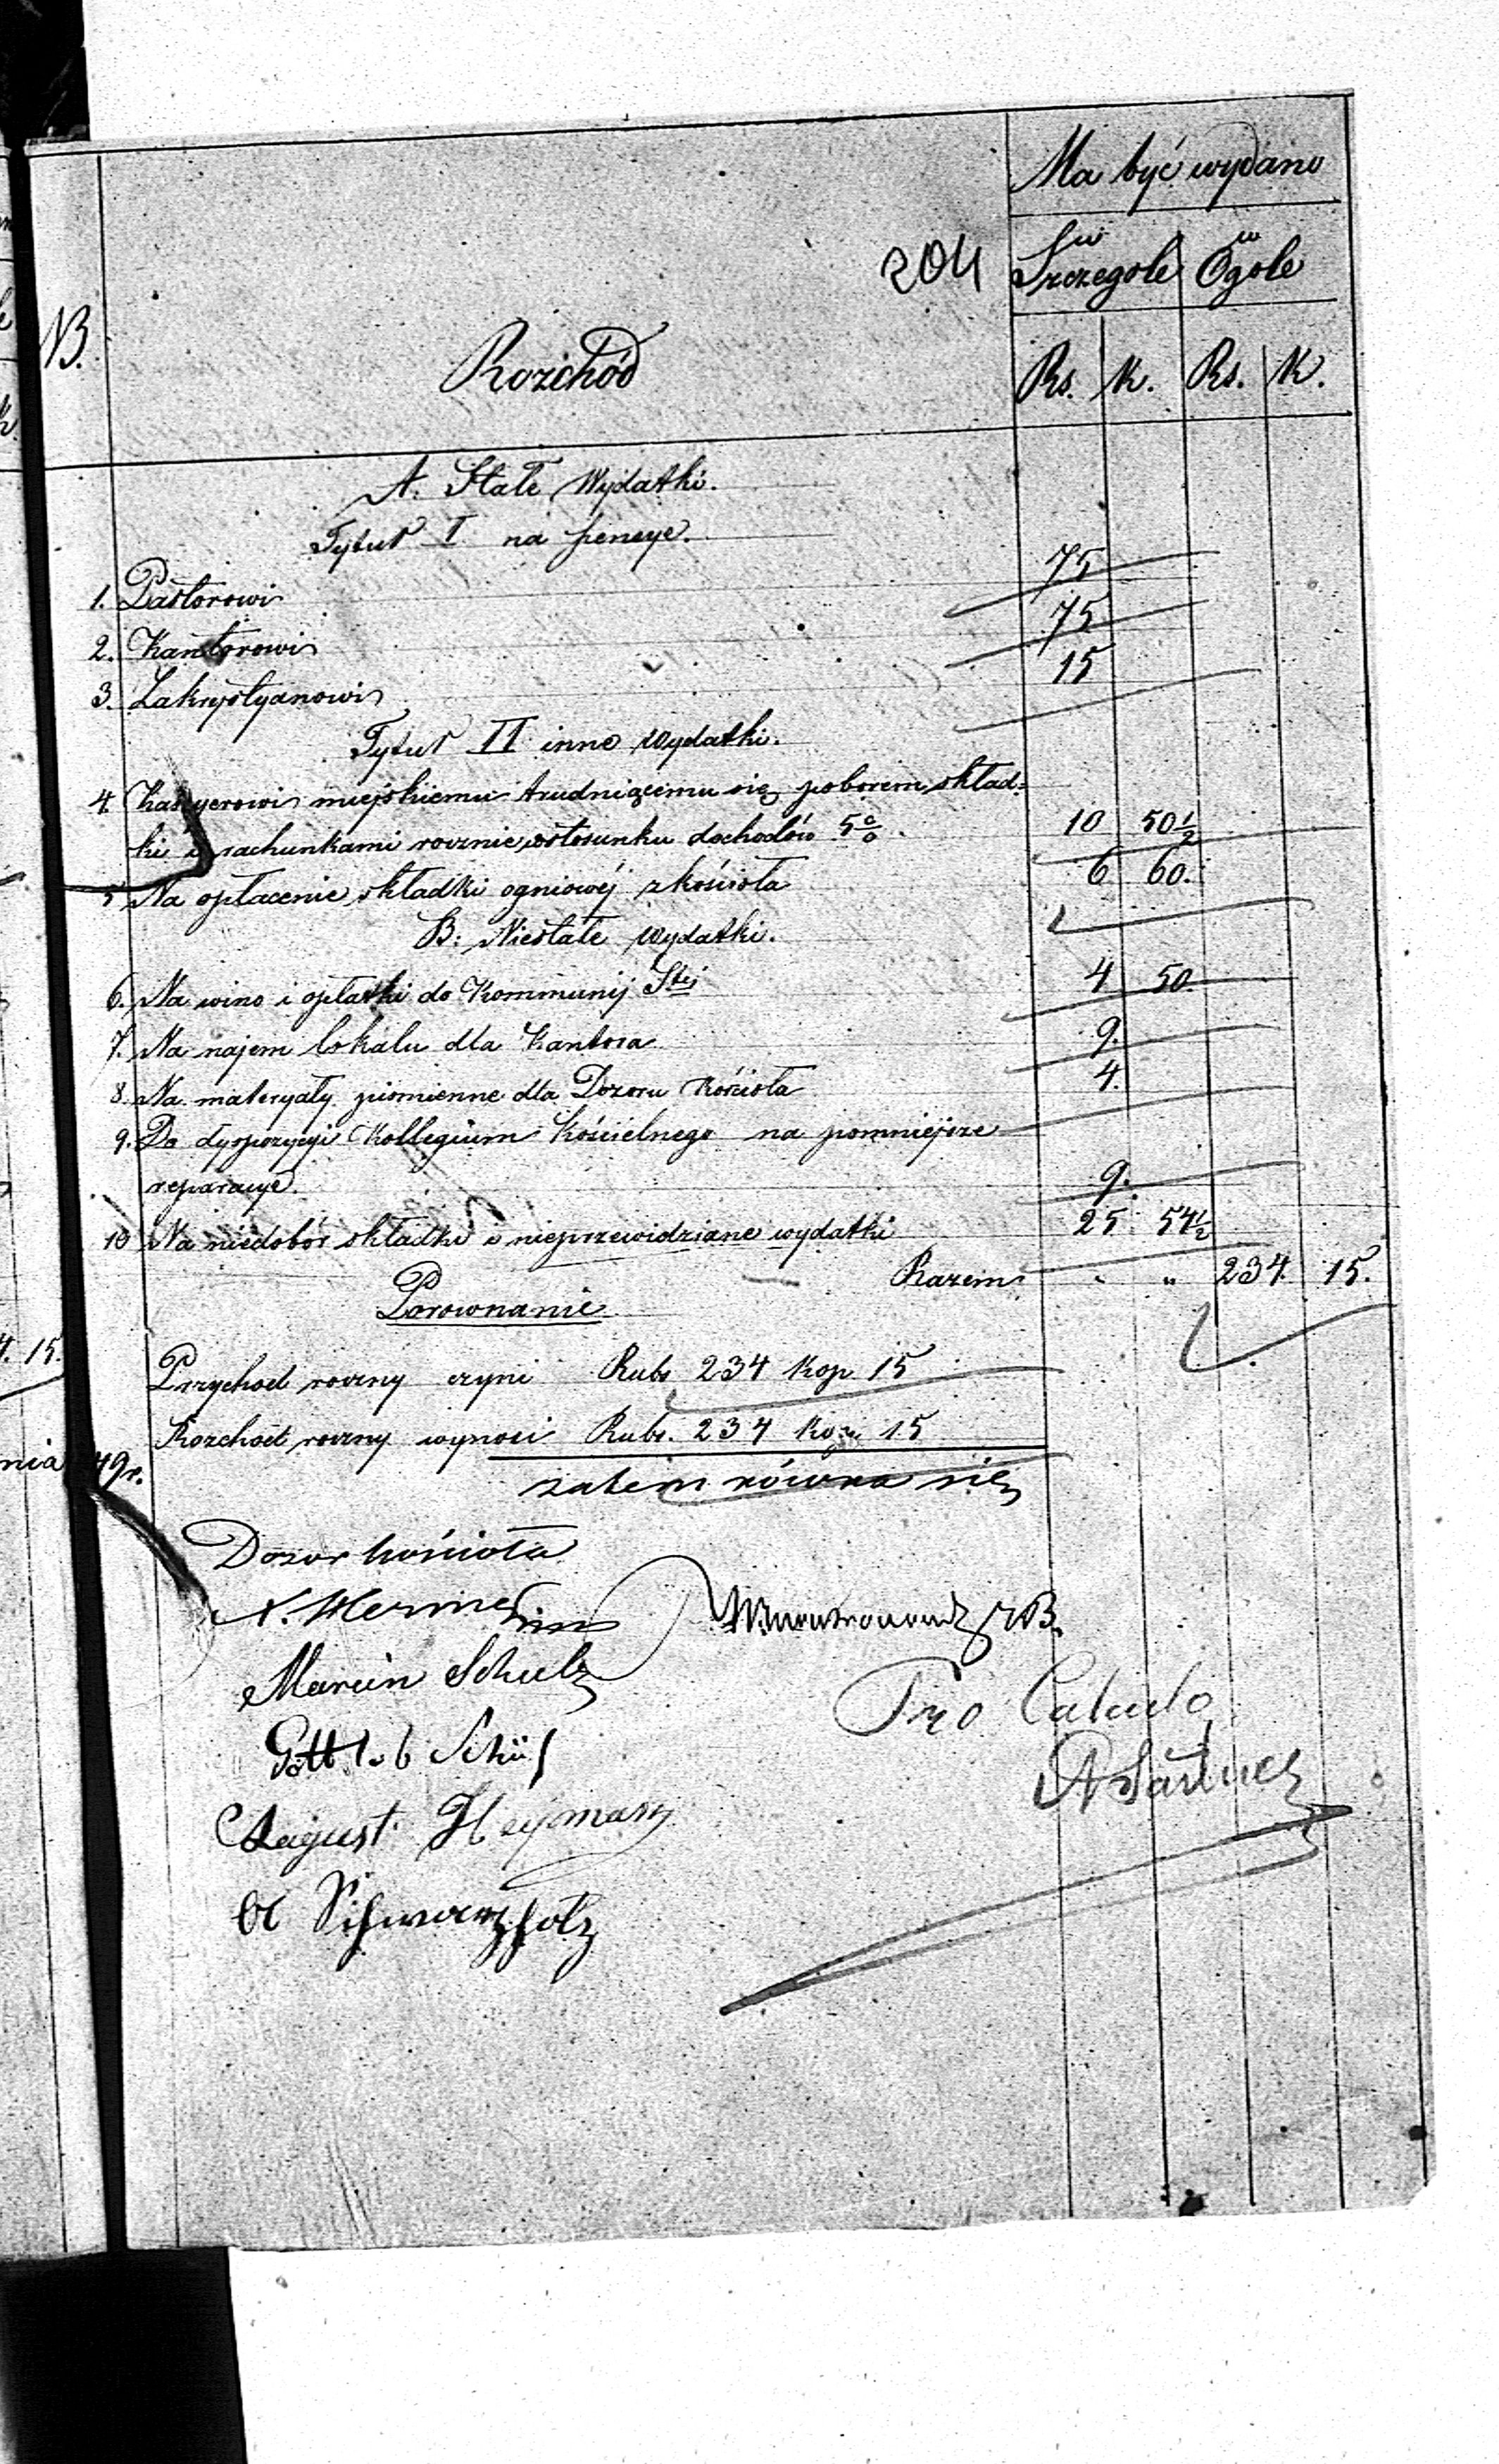 Ma być wydano
204
w Szczegole w Ogole
NB.
Rozchód
Rs. K. Rs. K.
A. Stałe Wydatki.
Tytuł I na pensye.
1. Pastorowi 75
2. Kantorowi 75
3. Zakrystyanowi 15
Tytuł II inne Wydatki.
4. Kassyerowi miejskiemu trudniącemu się poborem skład=
ki i rachunkami rocznie wstosunku dochodów 5%. 10 50 1/2
5 Na opłacenie składki ogniowéj zkościoła 6 60.
B: Niestałe Wydatki.
6. Na wino i opłatki do Kommunij Stéj 4 50.
7. Na najem lokalu dla Kantora 9.
8. Na materyały piśmienne dla Dozoru Kościoła 4.
9. Do dyspozycyi Kollegium Kościelnego na pomniejsze
reparacye. 9.
10 Na niedobór składki i nieprzewidziane wydatki 25 54 1/2
Razem " " 234. 15.
Porownanie
4. 15.
Przychod roczny czyni Rubs 234 Kop. 15
Rozchod roczny wynosi Rubs. 234 Kop. 15
nia 49r.
zatem równa się
Dozor kościoła
Marcin Schulz
August Heymann
Pro Calculo